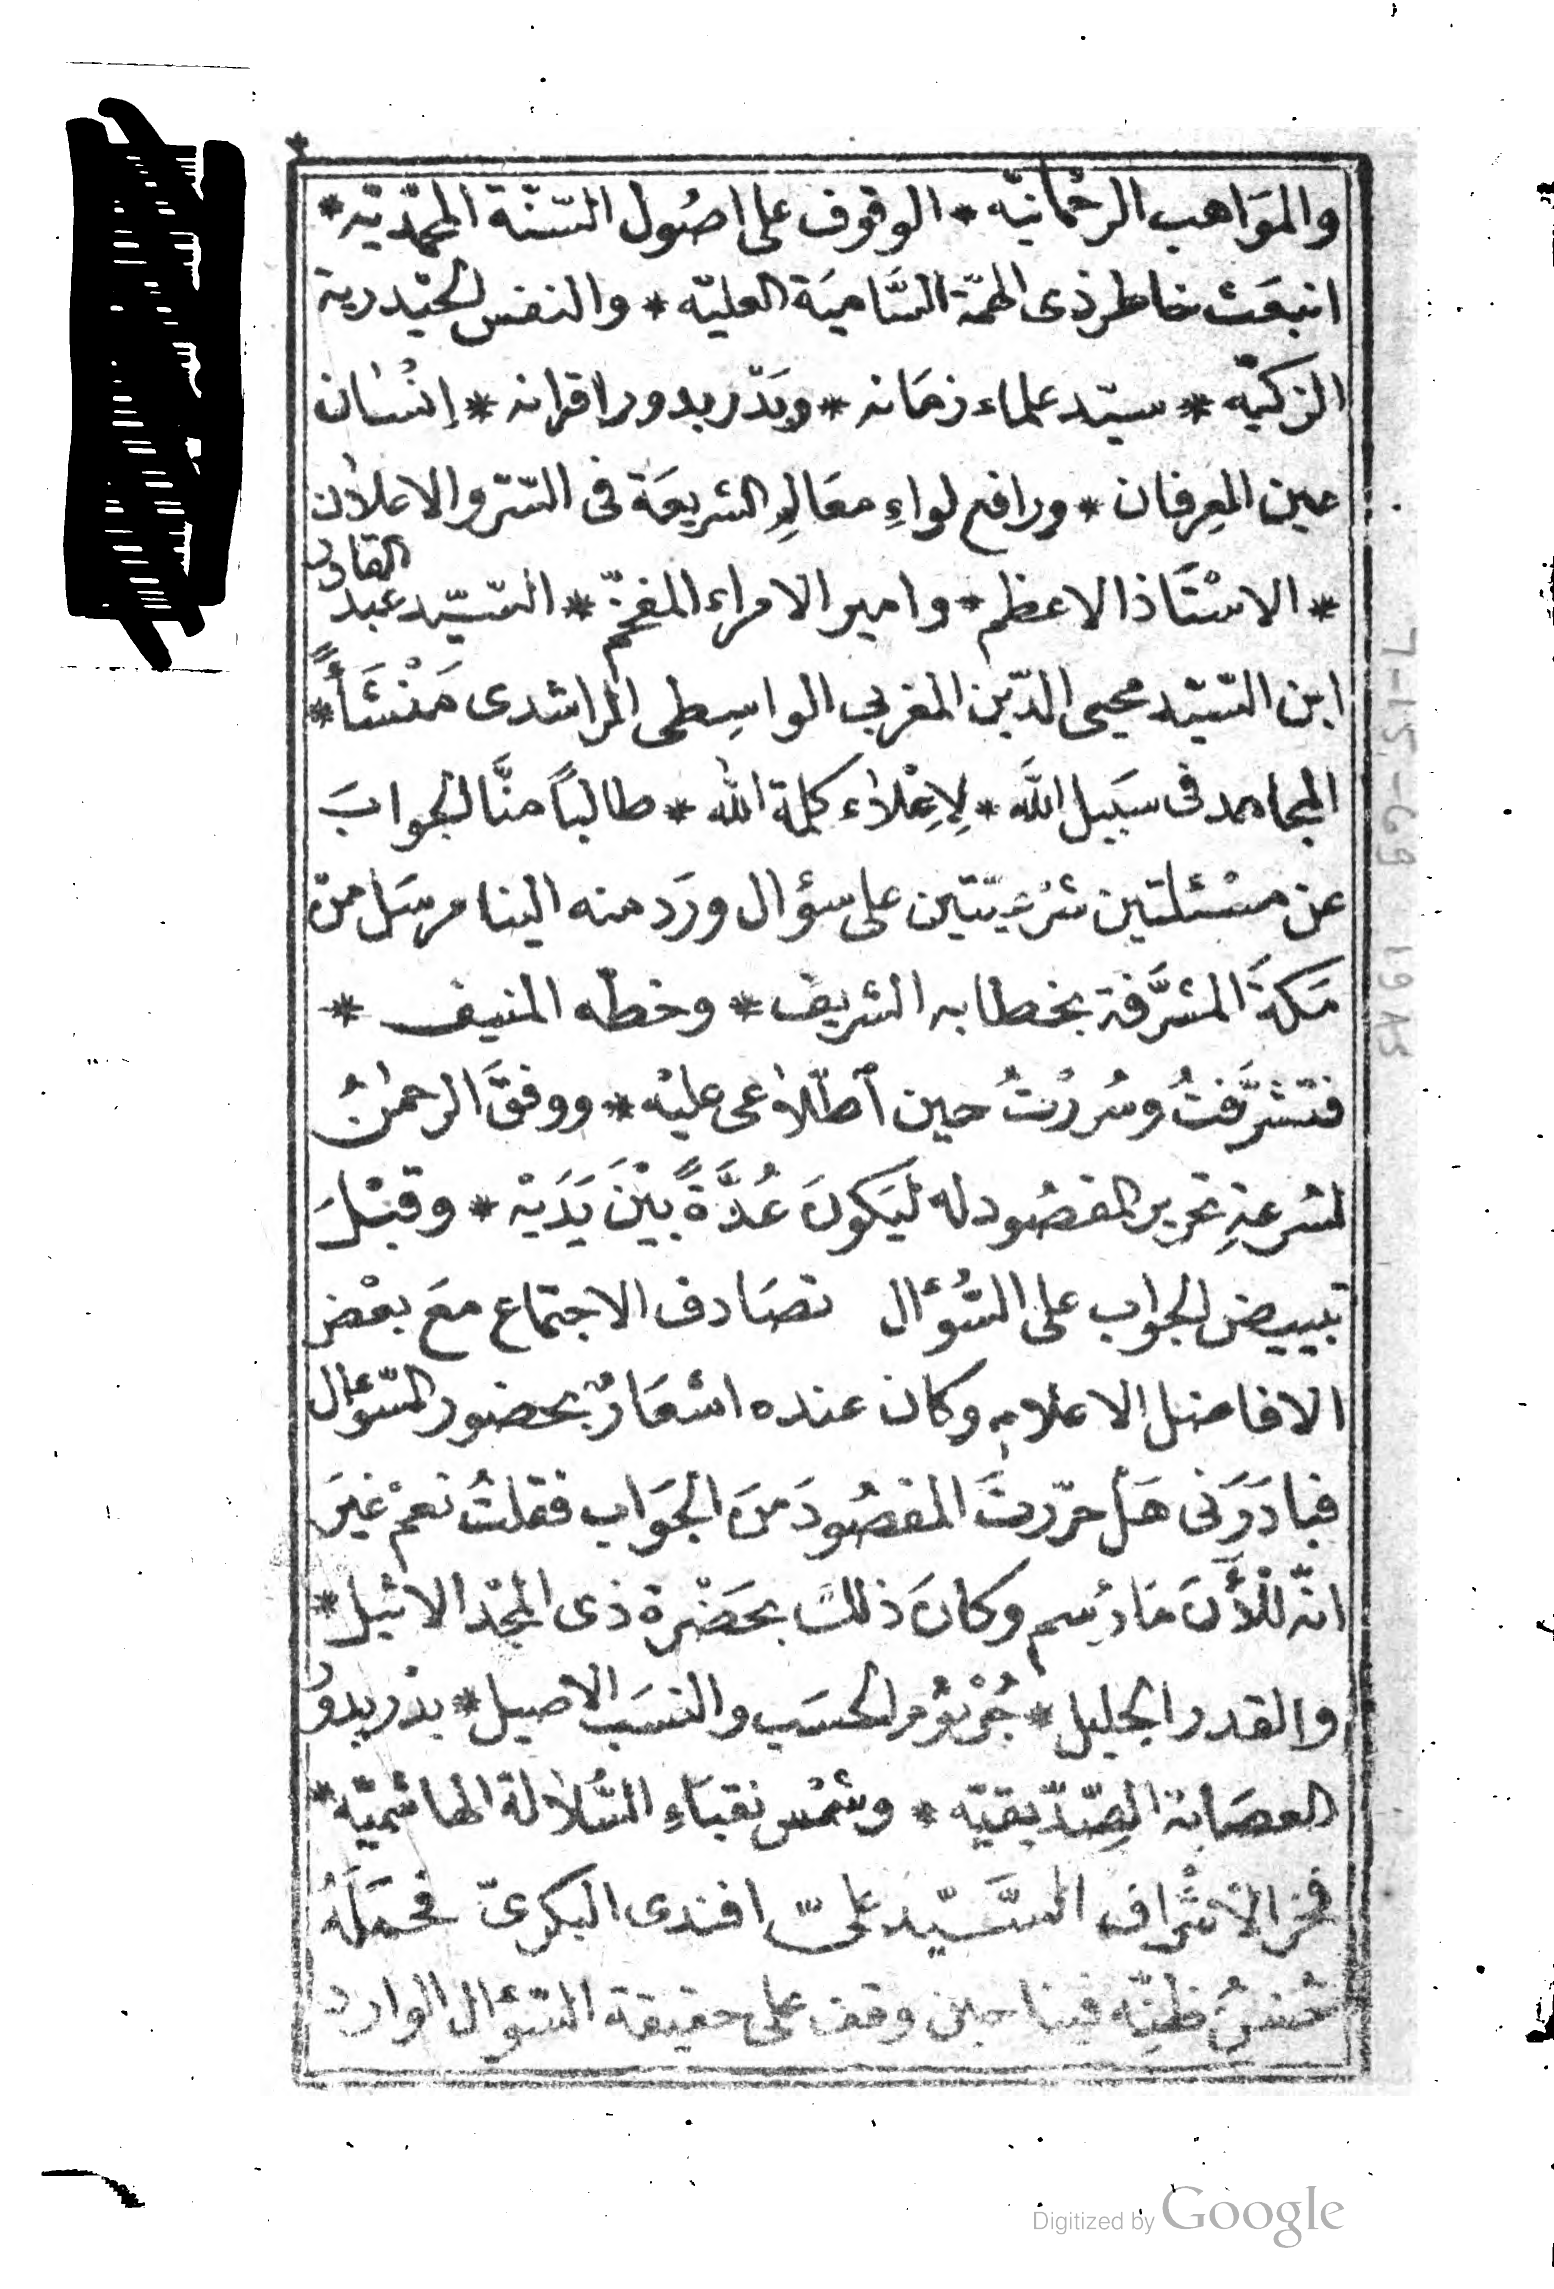 والموَاهب الرحْمانيّه * الوقوف على اصُول السّنّة المحمّديّه *
انبعَث خاطر ذى الهمّة السَّاميَة العليّه * والنفس الحيْدرية
الزكيّه * سيّد علماء زمَانه * وبَدْر بدور اقرانه * إنْسٰان
عين العِرفان * ورافع لواءِ معَالمِ الشريعَة فى السّتر والاعلان
* الاسْتَاذ الاعظم * وامير الامراء المفخّم * السّيّد عبد القادر
ابن السّيّد محيى الدّين المغربى الواسِطى الراشدى مَنْشَأً *
المجاهد فى سَبيل اللّٰه * لِاِعْلاٰء كلمة اللّٰه * طالبًا منَّا الجوابَ
عن مسْئلتين شرْعيّتين على سؤال ورَد منه الينا مرسَل من
مَكةَ المشرَّفة بخطابه الشريف * وخطّه المنيف *
فتشرَّفتُ وسُررْتُ حين ٱطّلاٰعى عليْه * ووفقَّ الرحمٰنُ
لسُرعةِ تحرير المقصُود له ليَكونَ عُدَّةً بيْنَ يَدَيْه * وقبْلَ
تبييض الجواب على السُّؤال تصَادف الاجتماع معَ بعْض
الافاضل الاعلامِ وكان عنده اشعَارٌ بحضور السّؤال
فبادَرَنى هَلْ حرّرتَ المقصُودَ منَ الجَوَاب فقلتُ نعَمْ غيَر
انّه للْأٓنَ مَا رُسِم وكانَ ذلكَ بحَضْرة ذى المجْد الاثيل *
والقدر الجليل * جُرْثوُم الحسَب والنسَب الاصيل * بدْر بدور
العصَابة الصِّدّيقيّه * وشمْس نقبَاءِ السُّلاٰلة الهاشميّة *
فخر الأشْراف السَّيّد علىّ افندى البكرىّ فحمَلَهُ
حُسْنُ ظنِّه فينا حين وقف على حقيقة السّؤال الوارد
Digitized by Google